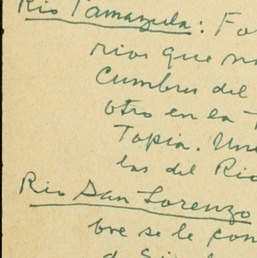 Rio Tamazula: Fo
rios que na
Cumbres del
otro en la
Topia. Uni
las del Rio
Rio San Lorenzo
bre se le con